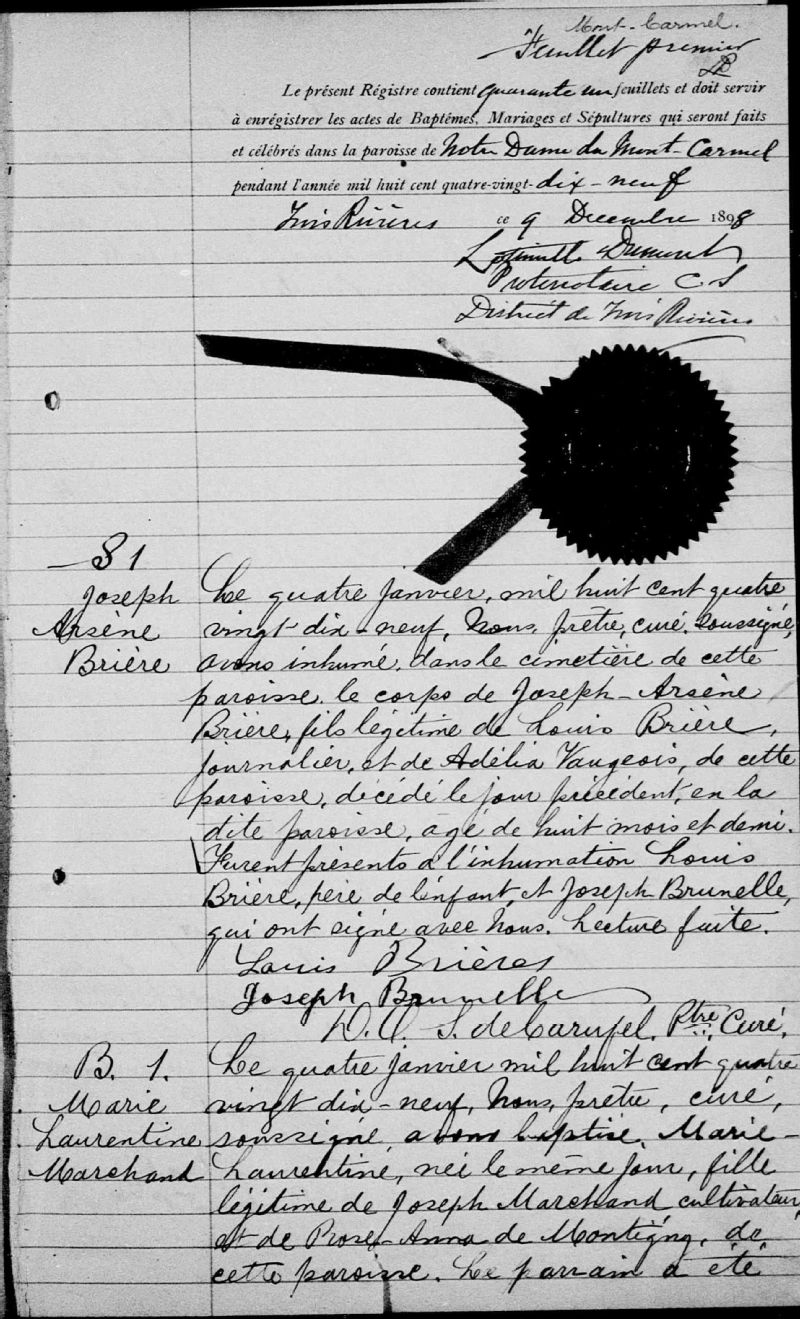 Mont-Carmel.
Feuillet premier
Le présent Régistre contient quarante un feuillets et doit servir
à enrégistrer les actes de Baptêmes, Mariages et Sépultures qui seront faits
et célébrés dans la paroisse de Notre Dame du Mont-Carmel
pendant l'année mil huit cent quatre-vingt-dix-neuf
Trois Rivières ce 9 Decembre 1898
Dumont
Protonotaire C S
District de Trois Rivières
S 1
Joseph
Arsène
Brière
Le quatre janvier, mil huit cent quatre
vingt dix-neuf, Nous, prêtre, curé, soussigné,
avons inhumé, dans le cimetière de cette
paroisse, le corps de Joseph-Arsène
Brière, fils légitime de Louis Brière,
journalier, et de Adélia Vaugeois, de cette
paroisse, décédé le jour précédent, en la
dite paroisse, agé de huit mois et demi.
Furent présents à l'inhumation Louis
Brière, père de l'enfant, et Joseph Brunelle,
qui ont signé avec Nous. Lecture faite.
Louis Brières
Joseph Brunelle
D. O. S. de Carufel, Ptre, Curé.
B. 1.
Marie
Laurentine
Marchand
Le quatre janvier mil huit cent quatre
vingt dix-neuf, Nous, prêtre, curé,
soussigné, avons baptisé, Marie-
Laurentine, née le même jour, fille
légitime de Joseph Marchand cultivateur,
et de Rose-Anna de Montigny, de
cette paroisse. Le parrain a été